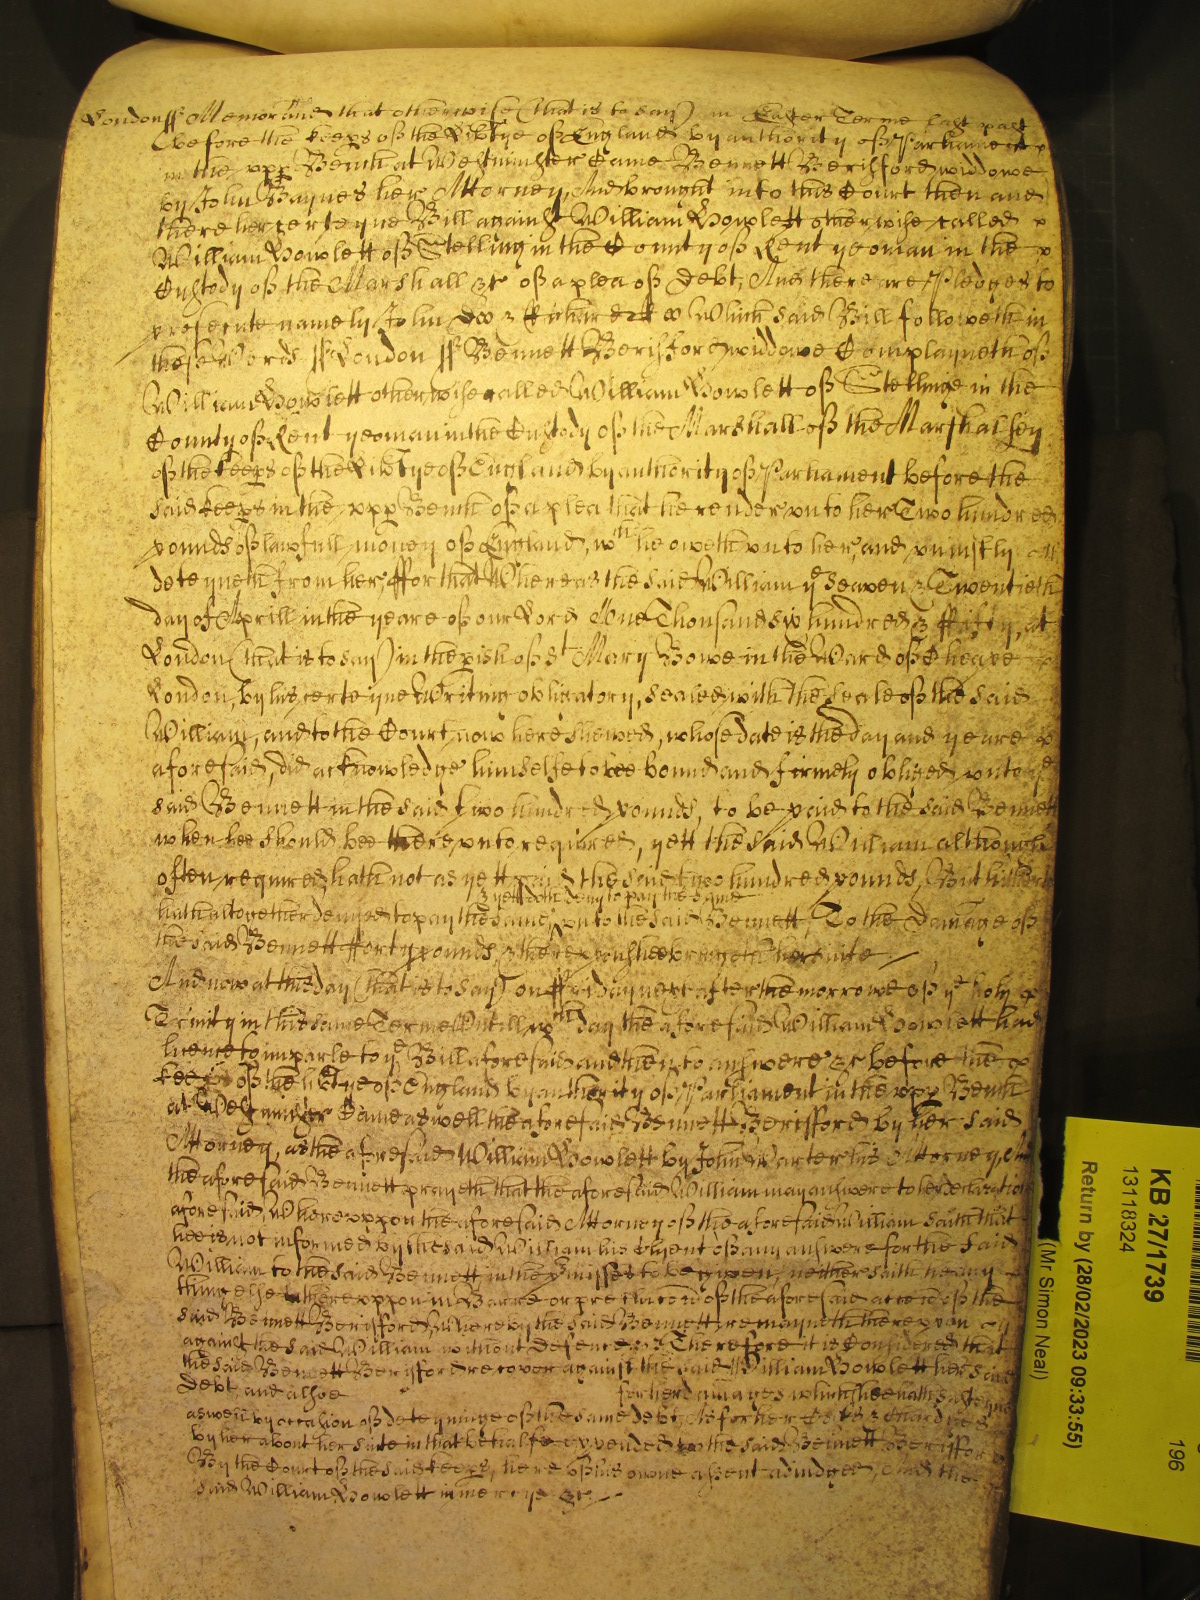 London ss Memorand that otherwise (that is to say) in Easter Terme last past
before the keeps of the Libtye of England by authority of Parliament
in the upp Bench at Westminster Came Bennett Berisford widdowe
by John Baynes her Attorney, And brought into this Court then and
there her certeyne Bill against William Howlett otherwise called
William Howlett of Stelling in the County of Kent yeoman in the
Custody of the Marshall &c of a plea of Debt, And there are Pledges to
prosecute namely John Doo & Richard Roo Which said Bill followeth in
these Words ss London ss Bennett Berisford widdowe Complayneth of
William Howlett otherwise called William Howlett of Stellinge in the
County of Kent yeoman in the Custody of the Marshall of the Marshalsey
of the keeps of the Libtye of England by authority of Parliament before the
said keeps in the upp Bench of a plea that he render unto her Two hundred
pounds of lawfull money of England, wch he oweth unto her, and uniustly
deteyneth from her, ffor that Whereas the said William ye Seaven & Twentieth
day of Aprill in the yeare of our Lord One Thousand six hundred & ffifty, at
London (that is to say) in the pish of St Mary Bowe in the Ward of Cheape
London, by his certeyne Writing obligatory, sealed with the seale of the said
William, and to the Court now here shewed, whose date is the day and yeare
aforesaid, did acknowledge himselfe to bee bound and firmely obliged unto ye
said Bennett in the said two hundred pounds, to be paid to the said Bennett
when hee should bee there unto required, yett the said William although
often required hath not as yett paid the said two hundred pounds, But hitherto
& yett doth deny to pay the same
hath altogether denyed to pay the same unto the said Bennett, To the Damage of
the said Bennett fforty pounds, & thereupon shee bringeth her suite
And now at this day (that is to say) on ffriday next after the morrowe of ye holy
Trinity in this same Terme Untill wch day the aforesaid William Howlett had
licence to imparle to ye Bill aforesaid and then to answere &c before the
keeps of the libtye of England by authority of Parliament in the upp Bench
at Westminster Came aswell the aforesaid Bennett Berisford by her said
Attorney, as the aforesaid William Howlett by John Carter his Attorney, And
the aforesaid Bennett prayeth that the aforesaid William may answere to her Declaration
aforesaid, Whereuppon the aforesaid Attorney of the aforesaid William saith that
hee is not informed by the said William his Clyent of any answere for the said
William to the said Bennett in the pmisses to be given, neither saith he any
thing else thereuppon in Barre or preclucion of the aforesaid accion of the
said Bennett Berisford, Whereby the said Bennett remayneth thereupon
against the said William without Defence, Therefore it is Considered that
the said Bennett Berisford recover against the said William Howlett her said
Debt, and alsoe for her damages which shee hath susteyned
aswell by occasion of deteyninge of the same debt, As for her Costs & Chardges
by her about her suite in that behalfe expended to the said Bennett Berisford
By the Court of the said keeps, here of his owne assent adiudged, And the
said William Howlett in mercye &c
KB 27/1739
13118324
Return by (28/02/2023 09:33:55)
(Mr Simon Neal)
196